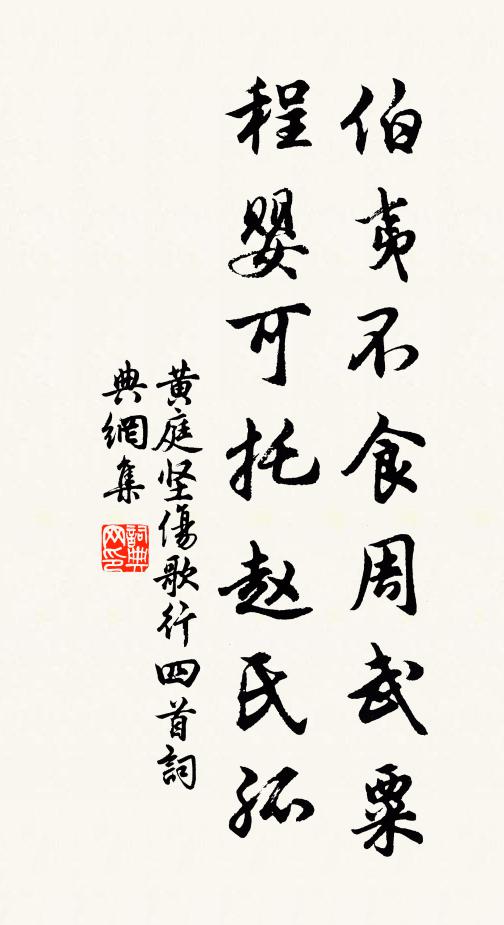 伯夷不食周武粟
程婴可托赵氏孤
黄庭坚傷歌行四首詞
典網集
詞典网印